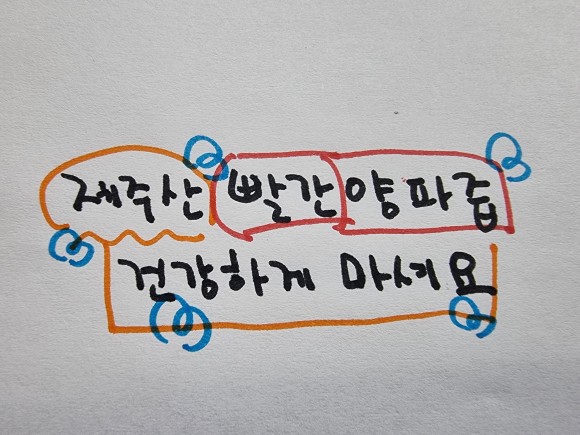 제주산 빨간 양파즙
건강하게 마세요